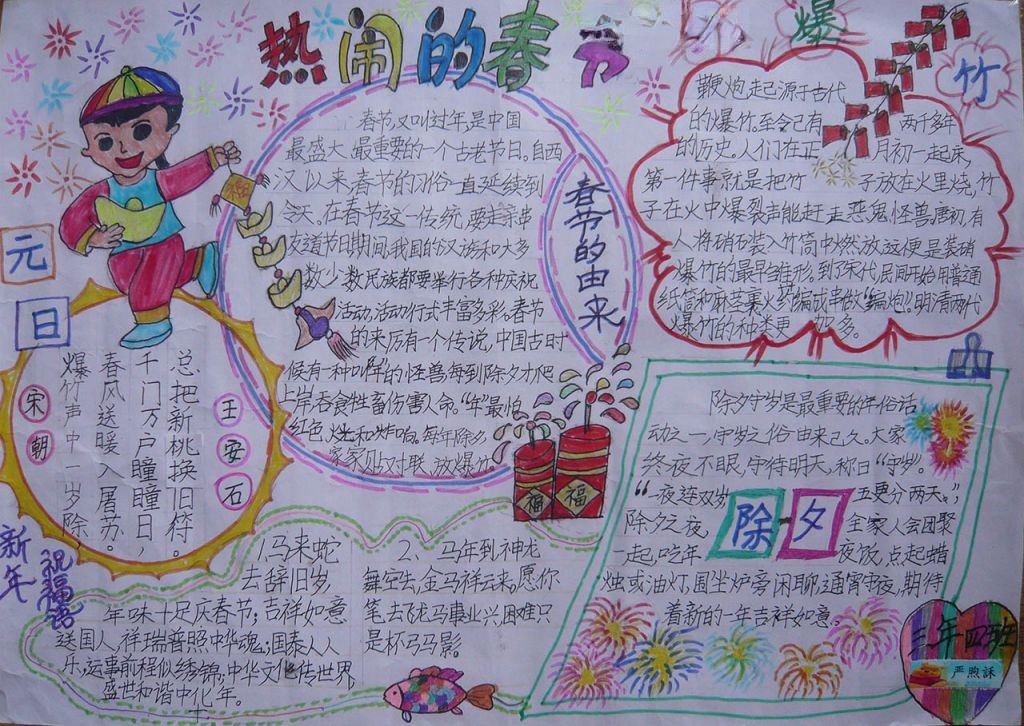 热闹的春节
爆
竹
元
日
春节又叫过年,是中国
最盛大、最重要的一个古老节日。自西
汉以来,春节的习俗一直延续到
今天。在春节这一传统,要走亲串
友道节日期间,我国的汉族和大多
数少数民族都要举行各种庆祝
活动,活动行式丰富多彩。春节
的来历有一个传说,中国古时
候有一种叫“年”的怪兽,每到除夕才爬
上岸吞食牲畜伤害人命。“年”最怕
红色、火光和炸响。每年除夕
家家贴对联,放爆竹。
春节的由来
鞭炮起源于古代
的爆竹。至今己有两千多年
的历史。人们在正月初一起床,
第一件事就是把竹子放在火里烧,竹
子在火中爆裂声能赶走恶鬼,怪兽。唐初,有
人将硝石装入竹筒中燃放,这便是装硝
爆竹的最早雏形。到了宋代,民间开始用普通
纸筒和麻茎裹火药编成串做“编炮”。明清两代
爆竹的种类更加多。
宋朝
王安石
爆竹声中一岁除,
春风送暖入屠苏。
千门万户瞳瞳日,
总把新桃换旧符。
福
福
除夕守岁是最重要的年俗活
动之一,守岁之俗由来己久。大家
终夜不眠,守待明天,称曰“守岁”。
“一夜连双岁,五更分两天。”,
除夕之夜,全家人会团聚
一起,吃年夜饭,点起蜡
烛或油灯,围坐炉旁闲聊,通宵守夜,期待
着新的一年吉祥如意。
除夕
新年
祝福语
1.马来蛇
去辞旧岁,
年味十足庆春节;吉祥如意
送国人,祥瑞普照中华魂;国泰人人
乐,运事前程似绣锦;中华文化传世界,
盛世和谐中化年。
2、马年到神龙
舞空去,金马祥云来。愿你
笔去飞龙马事业兴,困难只
是杯弓马影。
三年四班